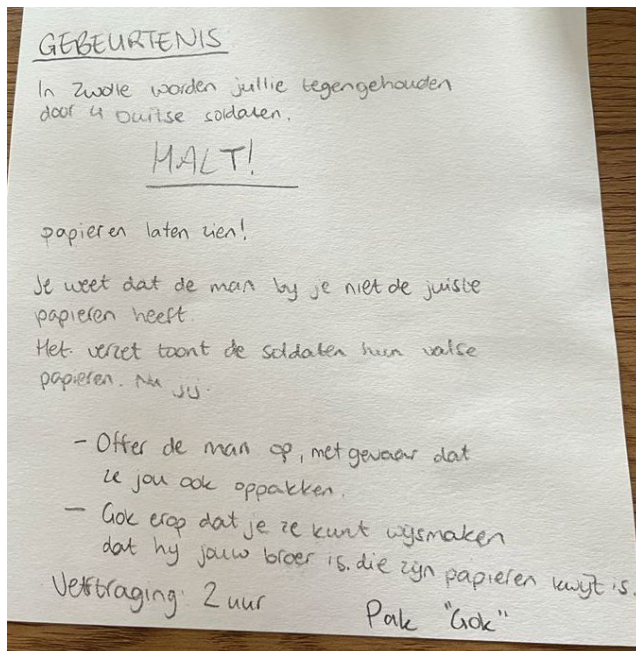 GEBEURTENIS
In Zwolle worden jullie tegengehouden
door 4 Duitse soldaten.
HALT!
papieren laten zien!
Je weet dat de man by je niet de juiste
papieren heeft.
Het verzet toont de soldaten hun valse
papieren. Nu jij.
- Offer de man op, met gevaar dat
ze jou ook oppakken.
- Gok erop dat je ze kunt wijsmaken
dat hy jouw broer is. die zijn papieren kwijt is.
Vertraging: 2 uur
Pak "Gok"